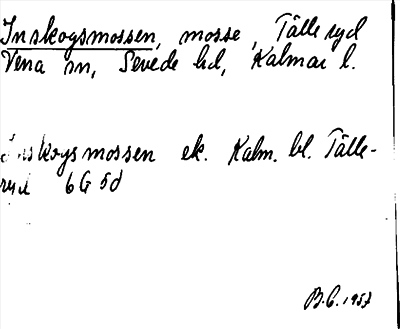 Inskogsmossen, mosse, Tålleryd
Vena sn, Sevede hd, Kalmar l.
Inskogsmossen ek. Kalm. bl. Tålle-
ryd 6G 5d
B.C. 1957